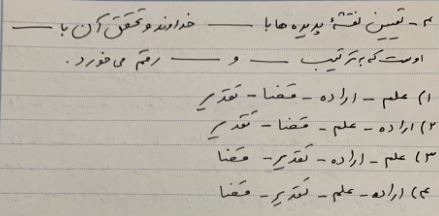 ۴- تعیین نقشهٔ پدیده ها با ــــ خداوند و تحقق آن با ــــ
اوست که به ترتیب ــــ و ــــ رقم می خورد.
۱) علم - اراده - قضا - تقدیر
۲) اراده - علم - قضا - تقدیر
۳) علم - اراده - تقدیر - قضا
۴) اراده - علم - تقدیر - قضا